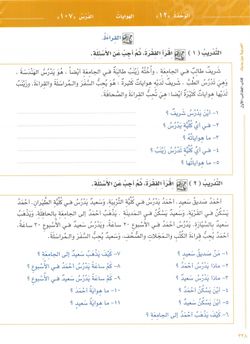 الوحدة «١٢» الهوايات الدرس «١٠٧»
القراءة
التدريب (١) اقرأ الفقرة، ثم أجب عن الأسئلة.
شريف طالب في الجامعة، وأخته زينب طالبة في الجامعة أيضا. هو يدرس الهندسة،
وهي تدرس الطب. شريف لديه هوايات كثيرة: هو يحب السفر والرياضة والقراءة، وزينب
لديها هوايات كثيرة أيضا: هي تحب القراءة والصحافة.
١- أين يدرس شريف؟
٢- في أي كلية يدرس؟
٣- ما هواياته؟
٤- أين تدرس زينب؟
٥- في أي كلية تدرس؟
٦- ما هواياتها؟
التدريب (٢) اقرأ الفقرة، ثم أجب عن الأسئلة.
أحمد صديق سعيد. أحمد يدرس في كلية التربية، وسعيد يدرس في كلية الطيران. أحمد
يسكن في القرية، وسعيد يسكن في المدينة. يذهب أحمد إلى الجامعة بالحافلة، ويذهب
سعيد بالسيارة. يدرس أحمد في الأسبوع ٢٠ ساعة، ويدرس سعيد في الأسبوع ٣٠ ساعة.
أحمد يحب قراءة الكتب والمجلات والصحف، وسعيد يحب السفر والمراسلة.
١- من صديق سعيد؟
٢- ماذا يدرس أحمد؟
٣- ماذا يدرس سعيد؟
٤- أين يسكن أحمد؟
٥- أين يسكن سعيد؟
٦- كيف يذهب أحمد إلى الجامعة؟
٧- كيف يذهب سعيد إلى الجامعة؟
٨- كم ساعة يدرس أحمد في الأسبوع؟
٩- كم ساعة يدرس سعيد في الأسبوع؟
١٠- ما هواية أحمد؟
١١- ما هواية سعيد؟